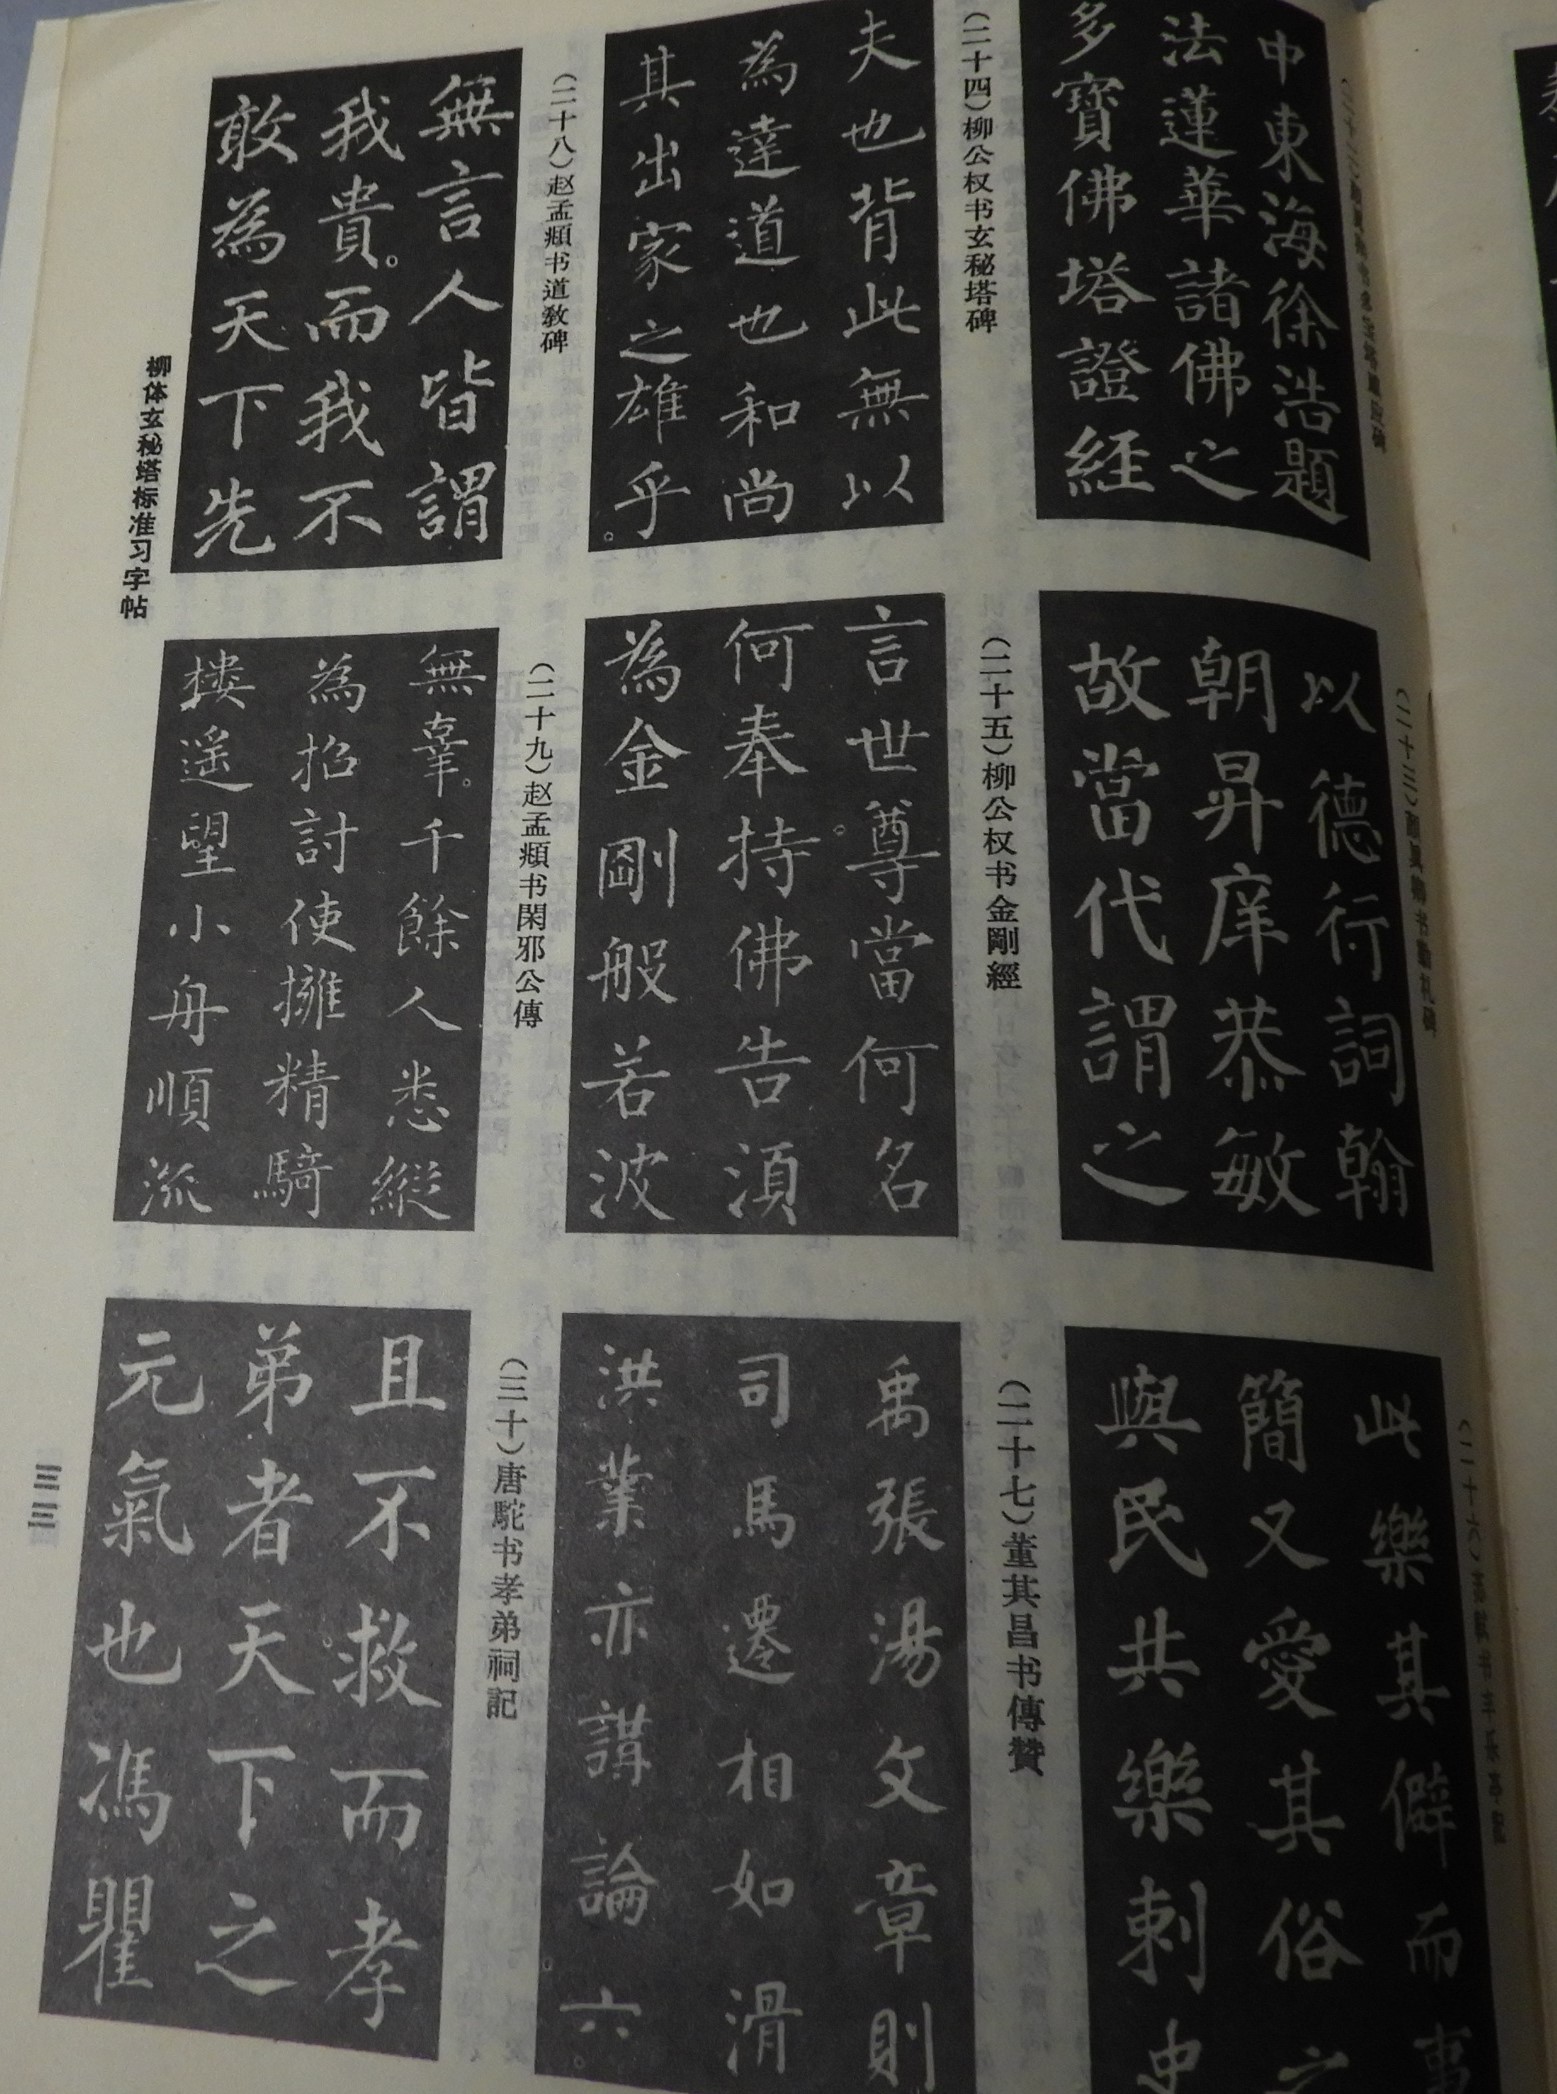 (二十二)颜真卿书多宝塔感应碑
中東海徐浩題
法蓮華諸佛之
多寶佛塔證經
(二十三)颜真卿书勤礼碑
以德行詞翰
朝昇庠恭敏
故當代謂之
(二十六)苏轼书丰乐亭记
此樂其僻而事
簡又愛其俗之
與民共樂刺史
(二十四)柳公权书玄秘塔碑
夫也背此無以
為達道也和尚
其出家之雄乎。
(二十五)柳公权书金剛經
言世尊。當何名
何奉持佛告須
為金剛般若波
(二十七)董其昌书傳贊
禹張湯文章則
司馬遷相如滑
洪業亦講論。六。
(二十八)赵孟頫书道教碑
無言人皆謂
我貴。而我不
敢為天下先
(二十九)赵孟頫书閑邪公傳
無辜。千餘人悉縱
為招討使擁精騎
摟遥望小舟順流
(三十)唐駝书孝弟祠記
且不救而孝
弟者。天下之
元氣也馮瞿
柳体玄秘塔标准习字帖
三三